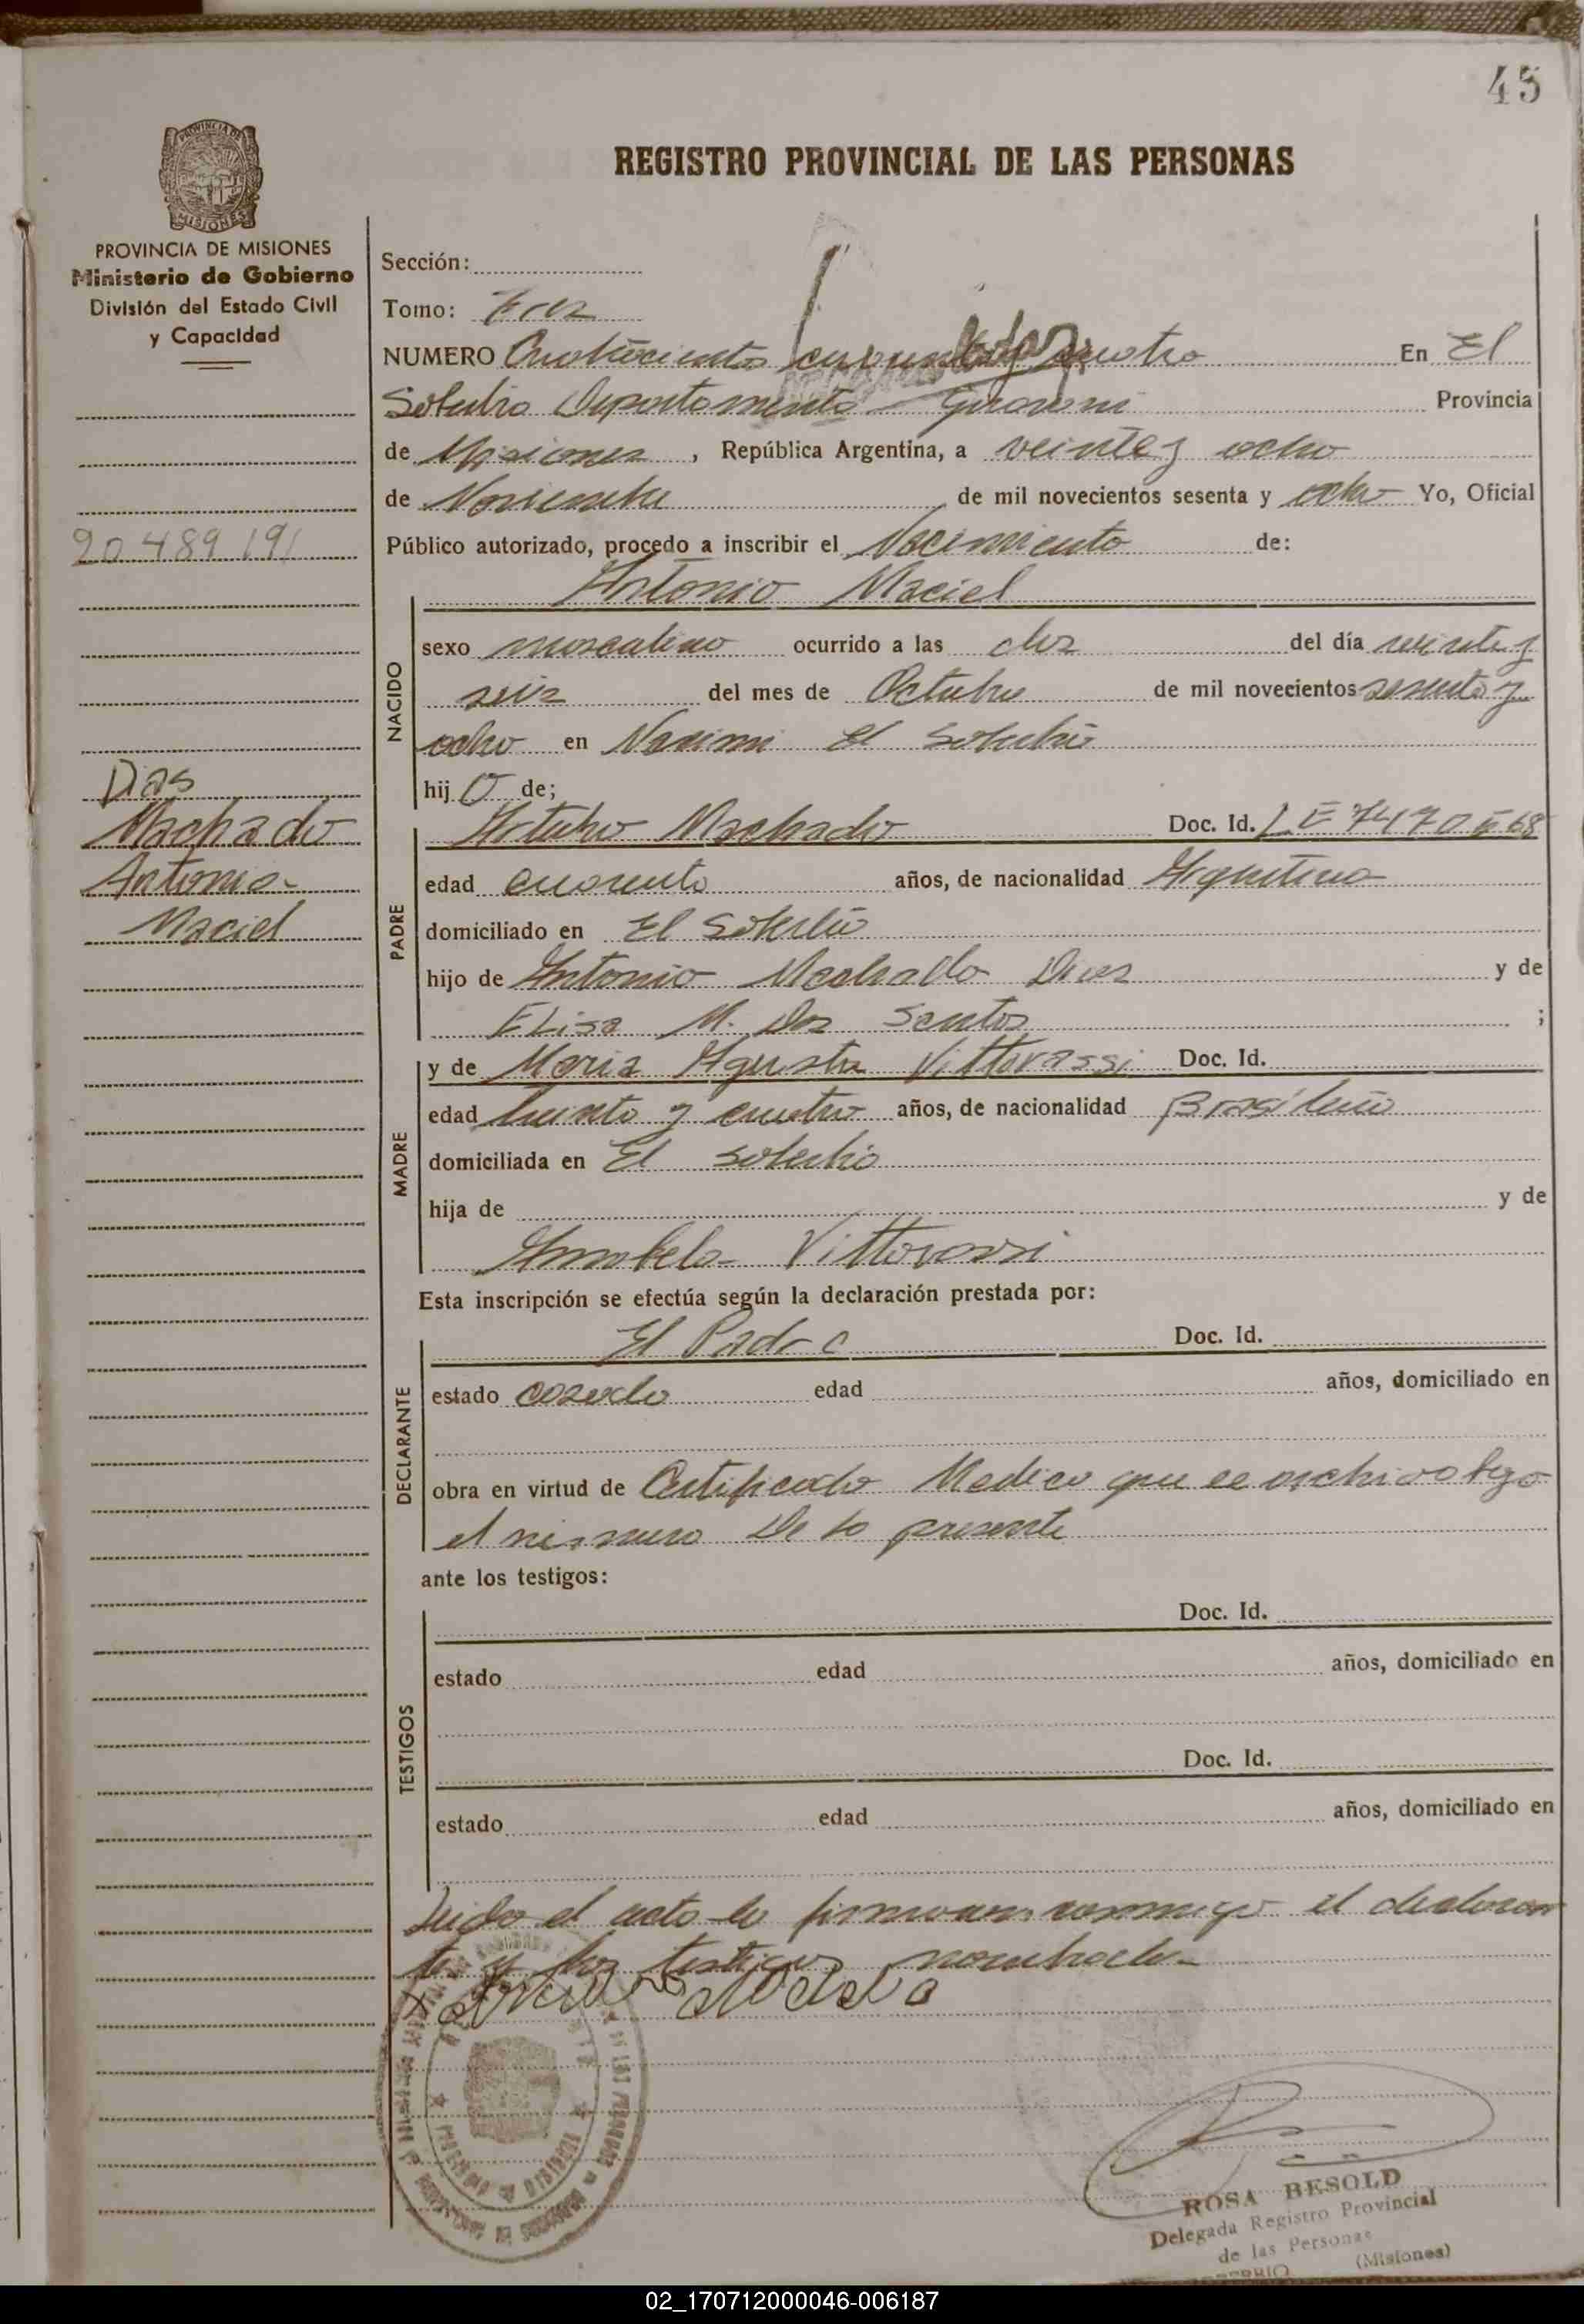 45
REGISTRO PROVINCIAL DE LAS PERSONAS
PROVINCIA DE MISIONES
MISIONES
PROVINCIA DE MISIONES
Ministerio de Gobierno
División del Estado Civil
y Capacidad
20 489 191
Dias
Machado
Antonio
Maciel
Sección:
Tomo: Tres
NUMERO Cuatrocientos cuarenta y cuatro En El
Soberbio Departamento Guarani Provincia
de Misiones, República Argentina, a veinte y ocho
de Noviembre de mil novecientos sesenta y ocho Yo, Oficial
Público autorizado, procedo a inscribir el Nacimiento de:
Antonio Maciel
NACIDO
sexo masculino ocurrido a las diez del día veinte y
seis del mes de Octubre de mil novecientos sesenta y
ocho en El Soberbio
hijo de;
PADRE
Arturo Machado Doc. Id. L E 7470568
edad cuarenta años, de nacionalidad Argentina
domiciliado en El Soberbio
hijo de Antonio Machado Dias y de
Elisa M. Dos Santos ;
MADRE
y de Maria Agusta Vittorassi Doc. Id.
edad treinta y cuatro años, de nacionalidad Brasileña
domiciliada en El Soberbio
hija de y de
Vittorassi
Esta inscripción se efectúa según la declaración prestada por:
DECLARANTE
El Padre Doc. Id.
estado casado edad años, domiciliado en
obra en virtud de Certificado Medico que se archiva bajo
el numero De la presente
ante los testigos:
TESTIGOS
Doc. Id.
estado edad años, domiciliado en
Doc. Id.
estado edad años, domiciliado en
Leida el acta la firman conmigo el declaran
te y los testigos nombrados
ROSA BESOLD
Delegada Registro Provincial
de las Personas
(Misiones)
02_170712000046-006187